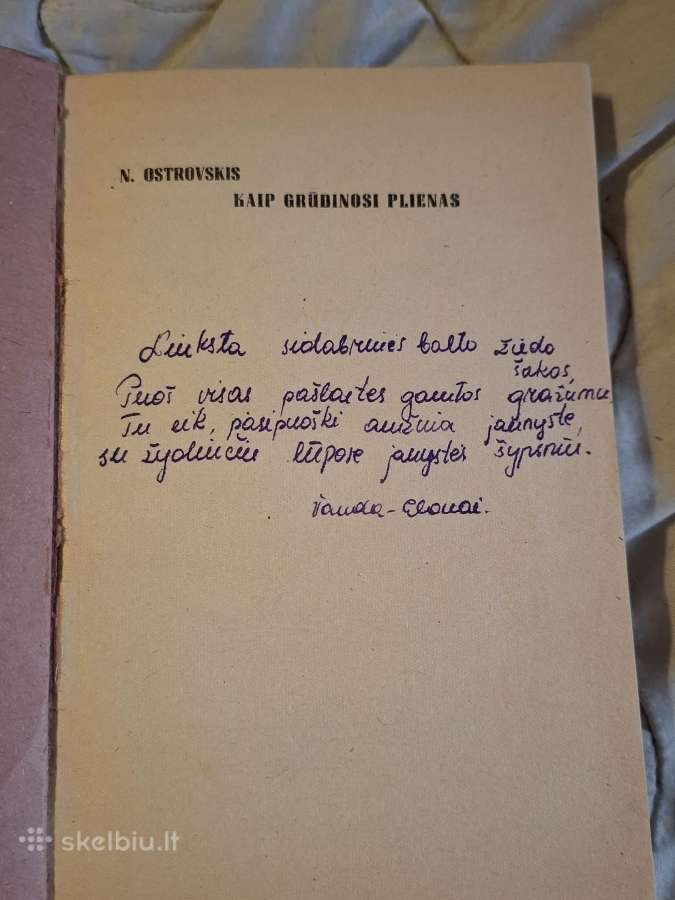 N. OSTROVSKIS
KAIP GRŪDINOSI PLIENAS
Linksta sidabrinės balto žiedo
šakos,
Puoš visas pašlaites gamtos gražumu
Tu eik, pasipuoški amžina jaunyste,
su žydinčiu lūpose jaunystės šypsniu.
Vanda - Elonai.
skelbiu.lt